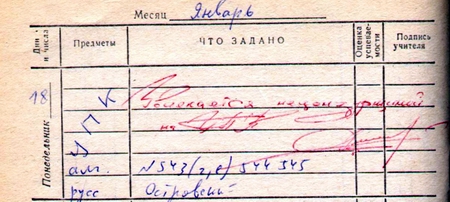 Месяц Январь
Дни и числа Предметы ЧТО ЗАДАНО Оценка успеваемости Подпись учителя
Понедельник
18
Увлекается нецензурщиной
на
алг. N 543 (г,е) 544 545
русс Островский